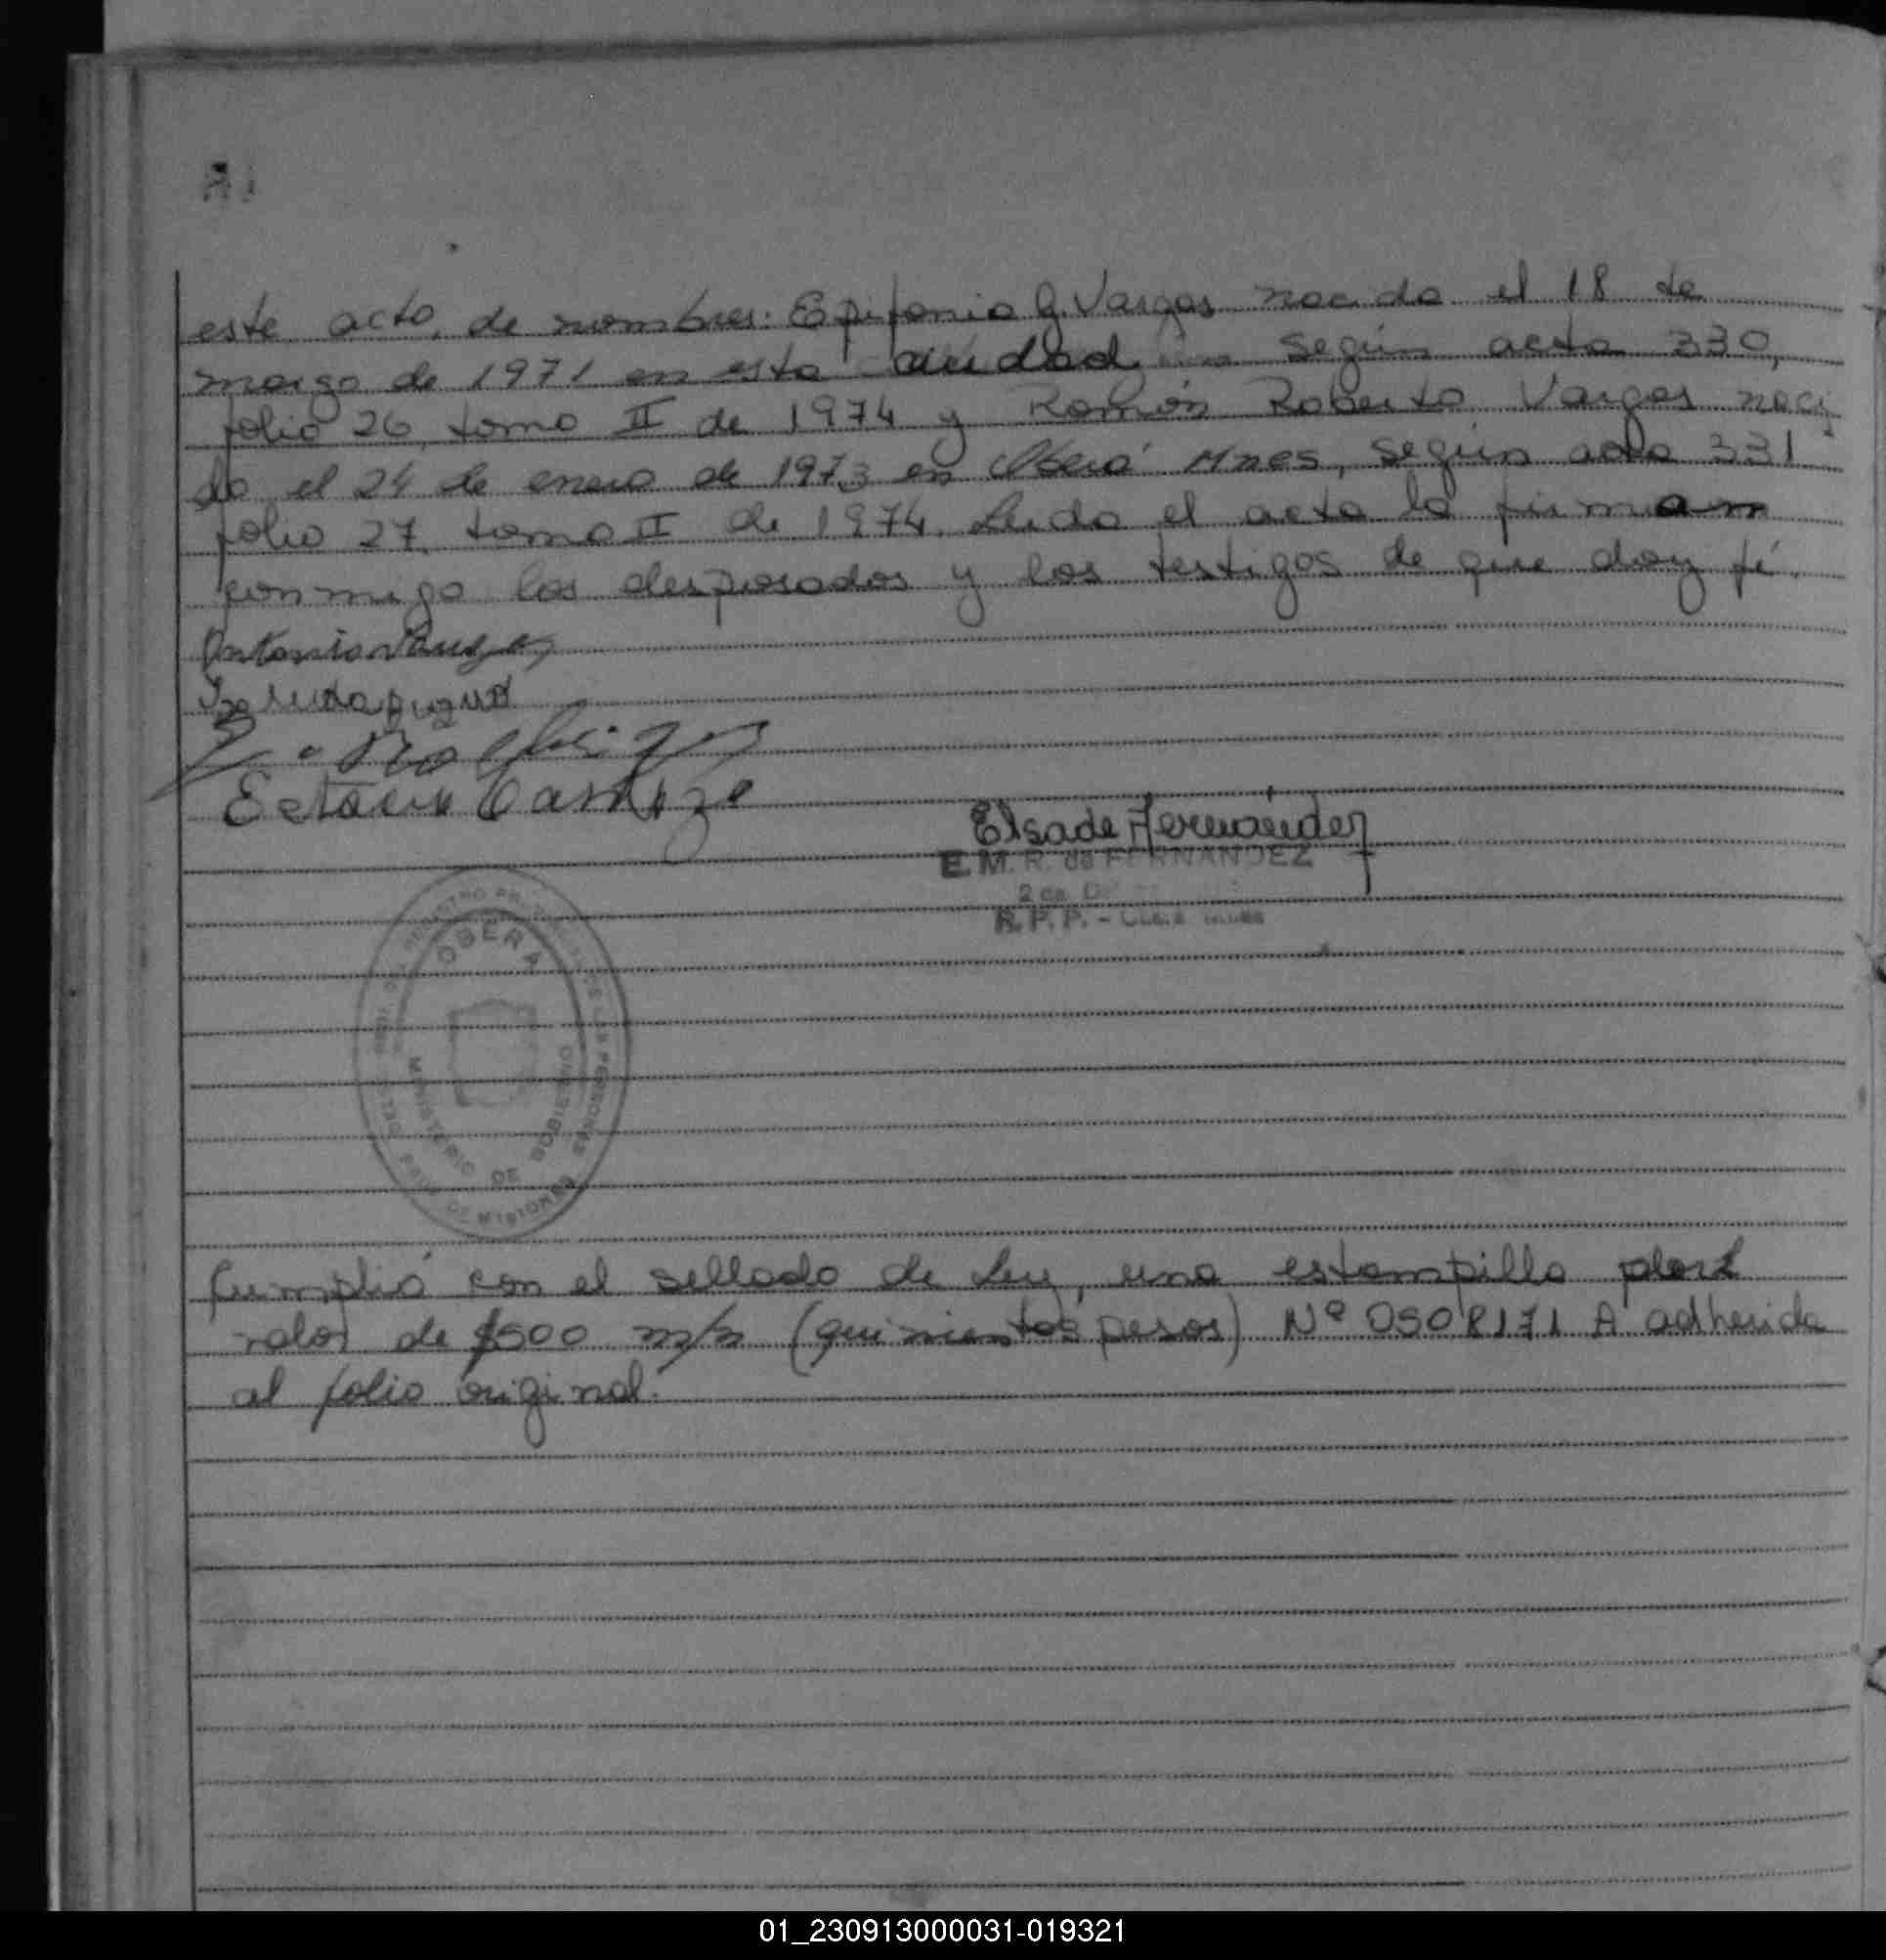 este acto, de nombres: Epifanio G. Vargas nacido el 18 de
marzo de 1971 en esta ciudad según acta 330,
folio 26, tomo II de 1974 y Ramón Roberto Vargas naci
do el 24 de enero de 1973 en Oberá Mnes, según acta 331
folio 27, tomo II de 1974. Leida el acta la firman
conmigo los desposados y los testigos de que doy fé.
Antonio Vargas
Ectacio
Elsa de Fernández
E. M. R. de FERNANDEZ
R. P. P. -
OBERA
MINISTERIO DE GOBIERNO
DE LAS PERSONAS
DE MISIONES
Cumplió con el sellado de Ley, una estampilla por el
valor de $500 m/n (quinientos pesos) Nº 0508171 A adherida
al folio original.
01_230913000031-019321